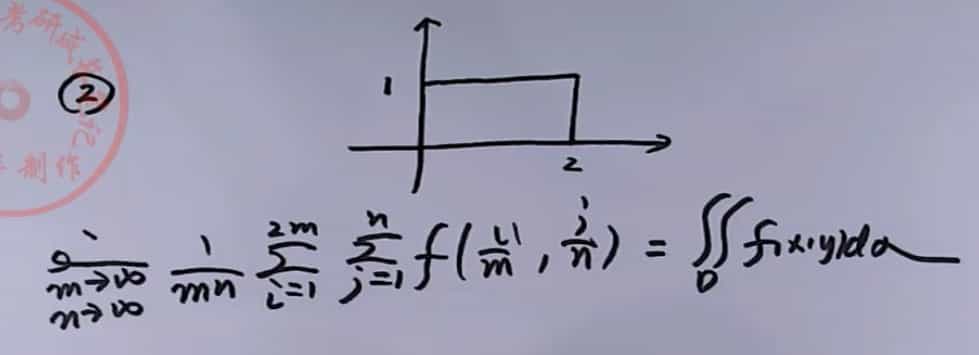 考研成长笔记
制作
②
1
2
lim m→∞ n→∞ 1/mn ∑ i=1 2m ∑ j=1 n f(i/m, j/n) = ∬ D f(x,y)dσ